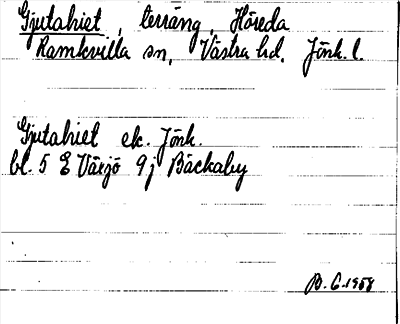 Gjutahiet, terräng, Höreda
Ramkvilla sn, Västra hd. Jönk. l.
Gjutahiet ek. Jönk.
bl. 5 E Växjö 9j Bäckaby
B. G. 1958